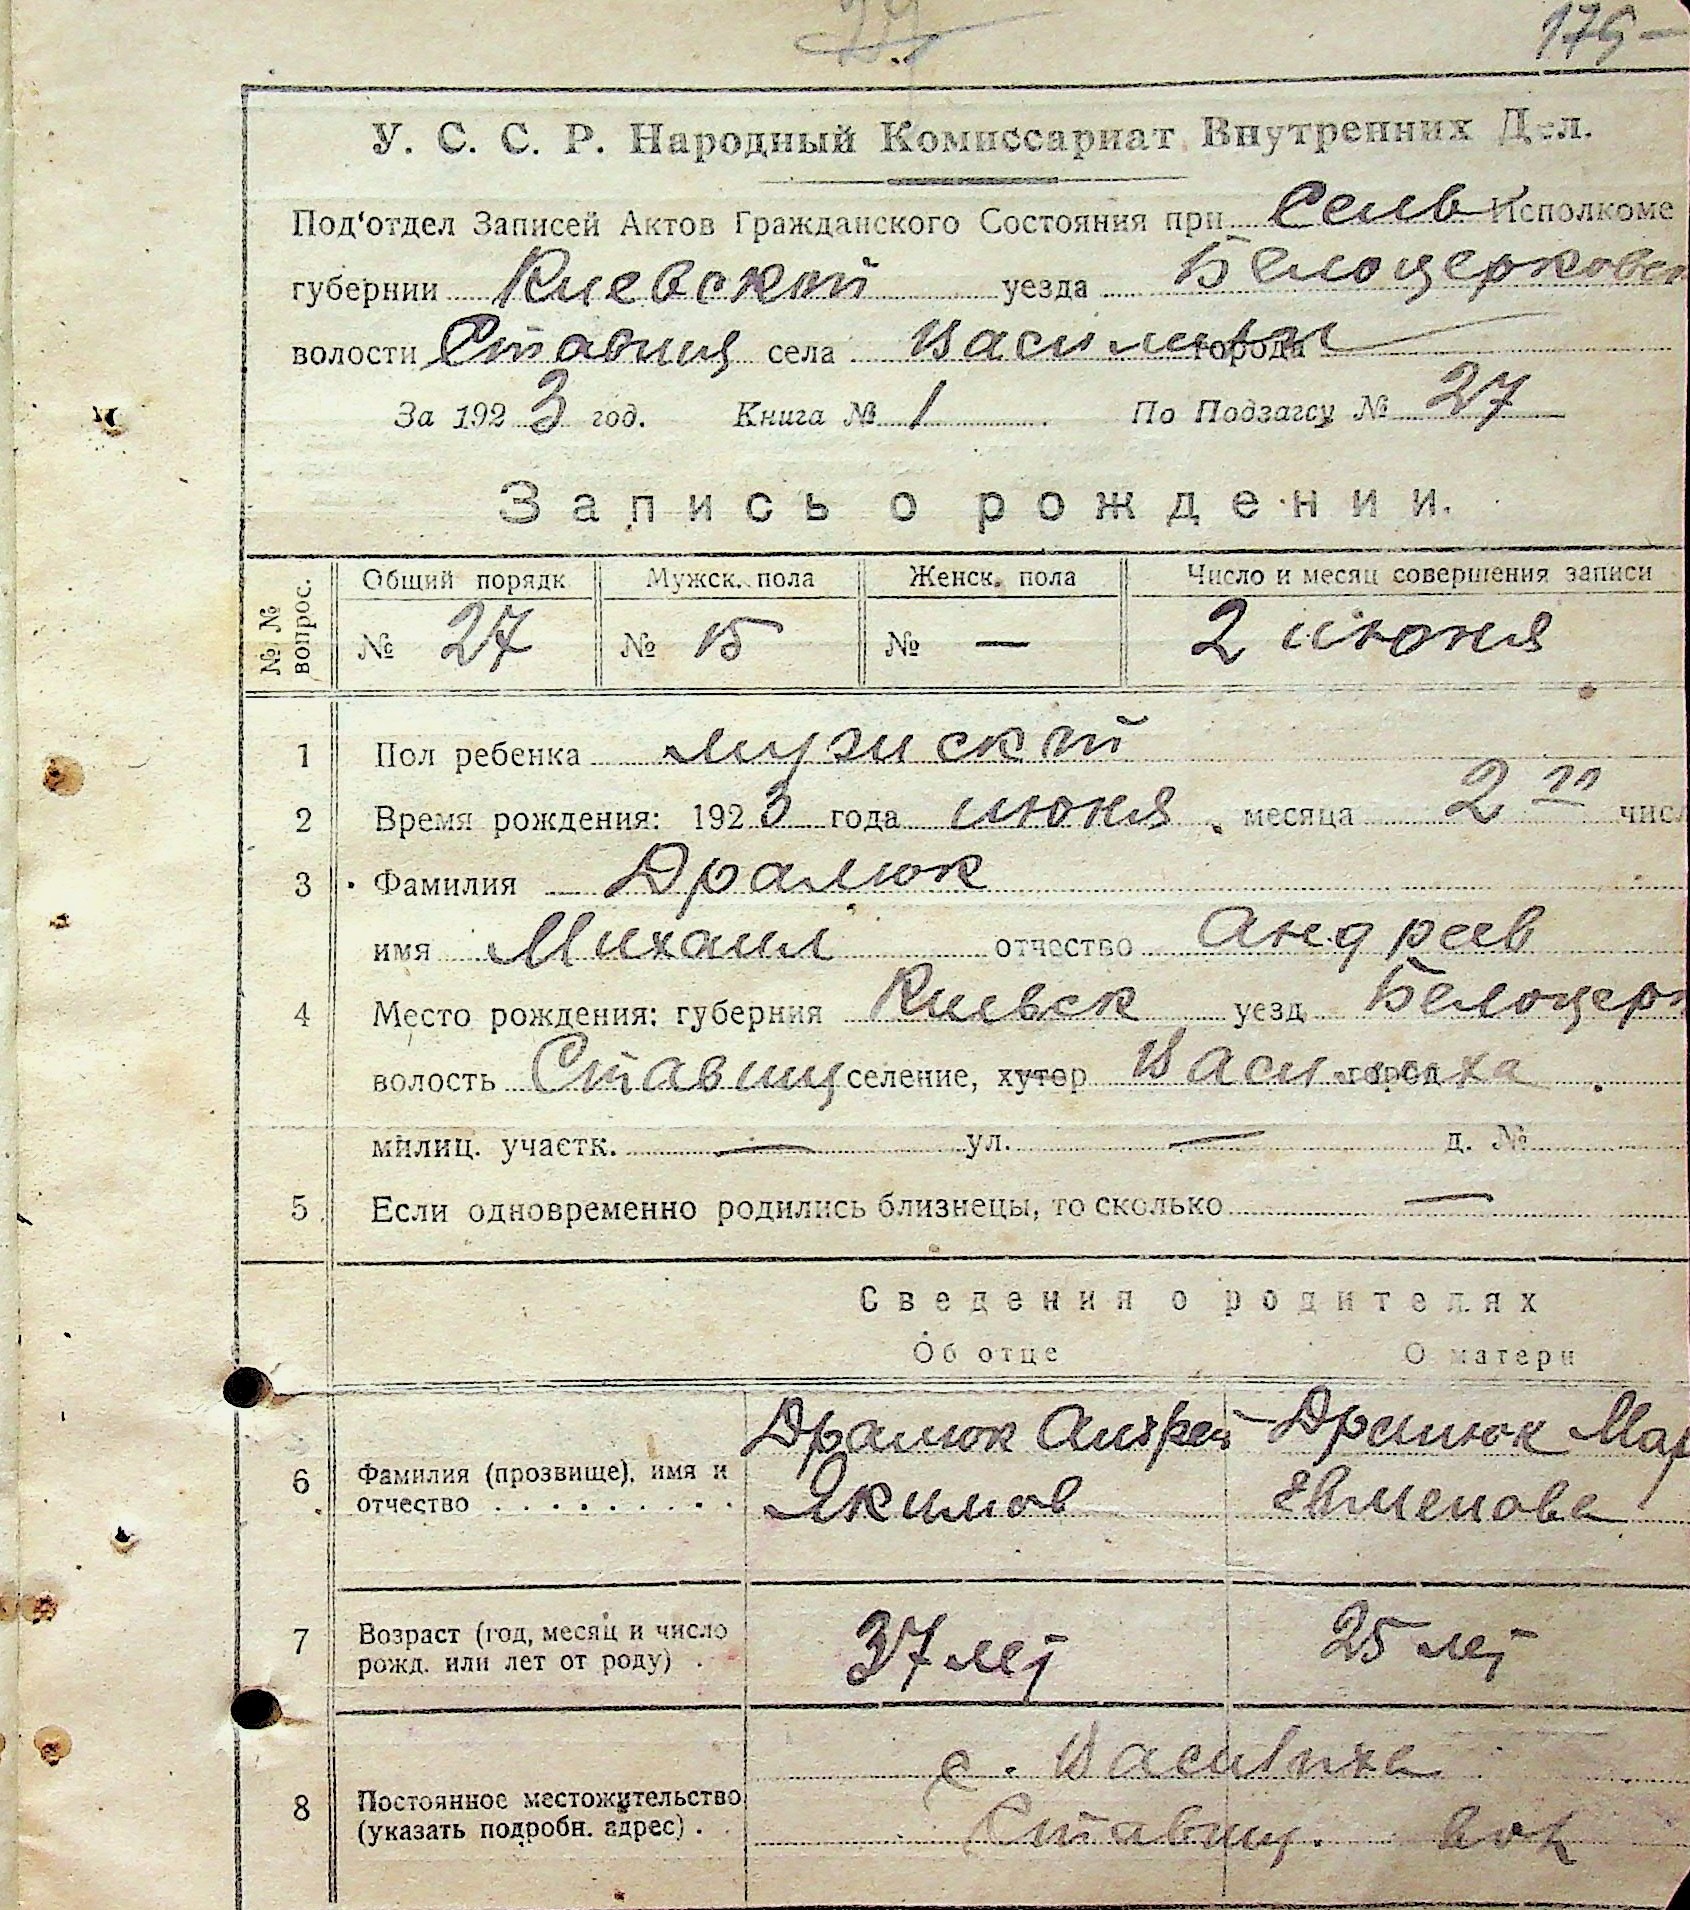 179
У. С. С. Р. Народный Комиссариат Внутренних Дел.
Под'отдел Записей Актов Гражданского Состояния при Сельв Исполкоме
губернии Киевской уезда Белоцерковск
волости Ставищ села города
За 1923 год. Книга № 1 По Подзагсу № 27
Запись о рождении.
№ № вопрос. Общий порядк Мужск. пола Женск. пола Число и месяц совершения записи
№ 27 № 15 № — 2 июня
1 Пол ребенка мужской
2 Время рождения: 1923 года июня месяца 2 го числ
3 Фамилия Дралюк
имя Михаил отчество Андреев
4 Место рождения: губерния Киевск уезд Белоцерк
волость Ставищ селение, хутор Василиха город
милиц. участк. — ул. — д. №
5 Если одновременно родились близнецы, то сколько —
Сведения о родителях
Об отце О матери
Дралюк Андрей Дралюк Мар
6 Фамилия (прозвище), имя и
отчество Якимов Евменова
7 Возраст (год, месяц и число
рожд. или лет от роду) . 37 лет 25 лет
с. Василиха
8 Постоянное местожительство
(указать подробн. адрес) . Ставищ. вол